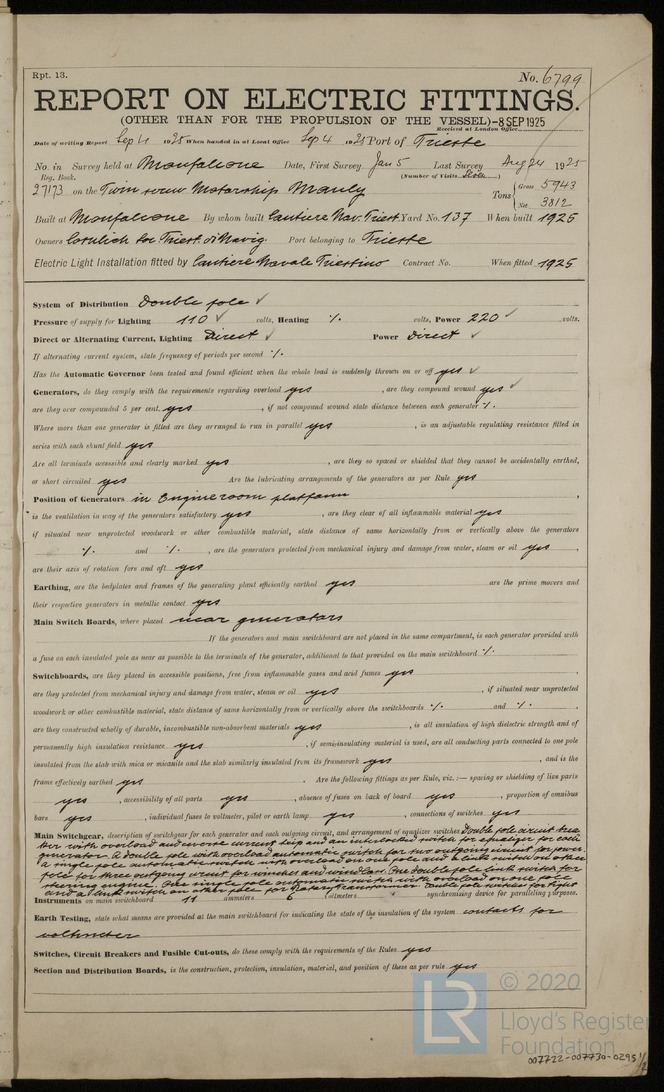 Rpt. 13.
No. 6799
REPORT ON ELECTRIC FITTINGS.
(OTHER THAN FOR THE PROPULSION OF THE VESSEL)
-8 SEP 1925
Received at London Office
Date of writing Report Sep 4 1925 When handed in at Local Office Sep 4 1925 Port of Trieste
No. in Survey held at Monfalcone Date, First Survey Jan 5 Last Survey Aug 24 1925
Reg. Book. (Number of Visits
27173 on the Twin screw Motorship Mauly Tons { Gross 5943
Net 3812
Built at Monfalcone By whom built Cantiere Nav. Triest. Yard No. 137 When built 1925
Owners Cosulich Soc Triest. di Navig. Port belonging to Trieste
Electric Light Installation fitted by Cantiere Navale Triestino Contract No. When fitted 1925
System of Distribution Double pole ✓
Pressure of supply for Lighting 110 ✓ volts, Heating ·/. volts, Power 220 ✓ volts.
Direct or Alternating Current, Lighting Direct ✓ Power Direct ✓
If alternating current system, state frequency of periods per second ·/.
Has the Automatic Governor been tested and found efficient when the whole load is suddenly thrown on or off yes ✓
Generators, do they comply with the requirements regarding overload yes , are they compound wound yes ✓
are they over compounded 5 per cent. yes , if not compound wound state distance between each generator ·/.
Where more than one generator is fitted are they arranged to run in parallel yes , is an adjustable regulating resistance fitted in
series with each shunt field yes
Are all terminals accessible and clearly marked yes , are they so spaced or shielded that they cannot be accidentally earthed,
or short circuited yes Are the lubricating arrangements of the generators as per Rule yes
Position of Generators in Engineroom platform ,
is the ventilation in way of the generators satisfactory yes , are they clear of all inflammable material yes ,
if situated near unprotected woodwork or other combustible material, state distance of same horizontally from or vertically above the generators
·/. and ·/. , are the generators protected from mechanical injury and damage from water, steam or oil yes ,
are their axis of rotation fore and aft yes
Earthing, are the bedplates and frames of the generating plant efficiently earthed yes are the prime movers and
their respective generators in metallic contact yes
Main Switch Boards, where placed near generators
If the generators and main switchboard are not placed in the same compartment, is each generator provided with
a fuse on each insulated pole as near as possible to the terminals of the generator, additional to that provided on the main switchboard ·/.
Switchboards, are they placed in accessible positions, free from inflammable gases and acid fumes yes ,
are they protected from mechanical injury and damage from water, steam or oil yes , if situated near unprotected
woodwork or other combustible material, state distance of same horizontally from or vertically above the switchboards ·/. and ·/. ,
are they constructed wholly of durable, incombustible non-absorbent materials yes , is all insulation of high dielectric strength and of
permanently high insulation resistance yes , if semi-insulating material is used, are all conducting parts connected to one pole
insulated from the slab with mica or micanite and the slab similarly insulated from its framework yes , and is the
frame effectively earthed yes . Are the following fittings as per Rule, viz.:— spacing or shielding of live parts
yes , accessibility of all parts yes , absence of fuses on back of board yes , proportion of omnibus
bars yes , individual fuses to voltmeter, pilot or earth lamp yes , connections of switches yes
Main Switchgear, description of switchgear for each generator and each outgoing circuit, and arrangement of equalizer switches Double pole circuit brea
ker with overload and reverse current trip and an interlocked switch for equalizer for each
generator. A double pole with overload automatic switch for two outgoing circuit for power.
a single pole automatic switch with overload on one pole and a link switch on other
pole for three outgoing circuit for winches and windlass. One double pole link switch for
steering engine. One single pole automatic switch with overload on one pole
and a link switch on other pole for Rotary Transformer. Double pole switches for light
Instruments on main switchboard 11 ammeters 6 voltmeters synchronizing device for paralleling purposes.
Earth Testing, state what means are provided at the main switchboard for indicating the state of the insulation of the system contacts for
voltmeter
Switches, Circuit Breakers and Fusible Cut-outs, do these comply with the requirements of the Rules yes
Section and Distribution Boards, is the construction, protection, insulation, material, and position of these as per rule yes
LR
© 2020
Lloyd's Register
Foundation
007722-007730-0295 1/2